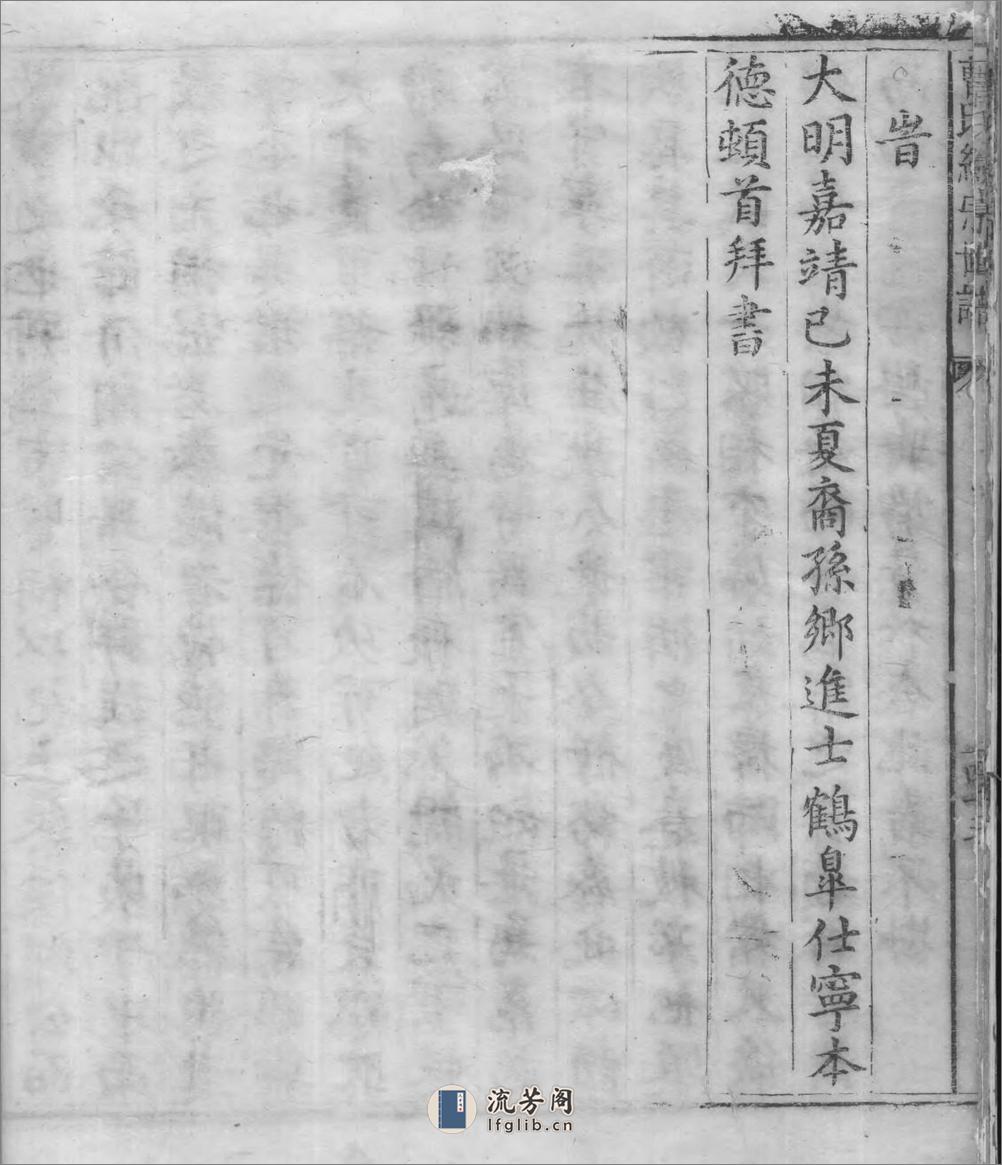 旹
大明嘉靖己未夏裔孫鄉進士鶴皐仕寧本
德頓首拜書
曹氏統宗世譜
流芳阁
lfglib.cn